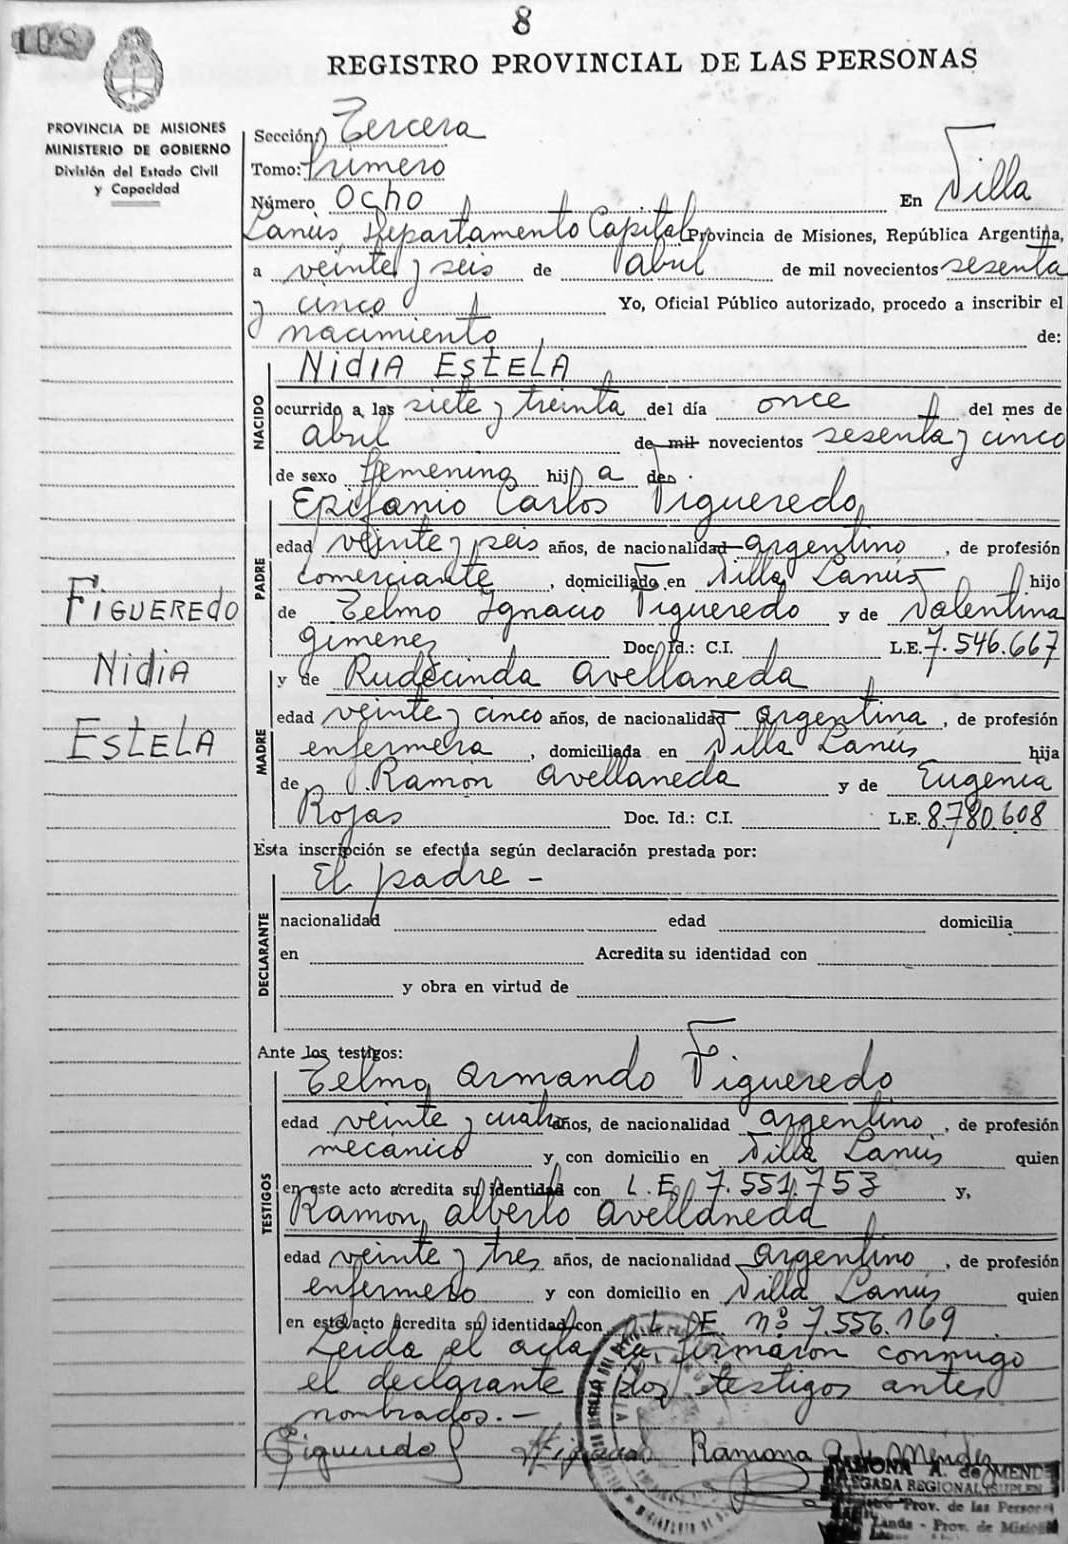 108
8
REGISTRO PROVINCIAL DE LAS PERSONAS
PROVINCIA DE MISIONES
MINISTERIO DE GOBIERNO
División del Estado Civil
y Capacidad
Sección: Tercera
Tomo: Primero
Número Ocho En Villa
Lanús, Departamento Capital Provincia de Misiones, República Argentina,
a veinte y seis de Abril de mil novecientos sesenta
y cinco Yo, Oficial Público autorizado, procedo a inscribir el
nacimiento de:
NACIDO
NIDIA ESTELA
ocurrido a las siete y treinta del día once del mes de
Abril de mil novecientos sesenta y cinco
de sexo femenino hij a de
PADRE
Epifanio Carlos Figueredo
edad veinte y seis años, de nacionalidad argentino, de profesión
comerciante, domiciliado en Villa Lanús hijo
de Telmo Ignacio Figueredo y de Valentina
Gimenez Doc. Id.: C.I. L.E. 7.546.667
y de Rudecinda Avellaneda
MADRE
edad veinte y cinco años, de nacionalidad argentina, de profesión
enfermera, domiciliada en Villa Lanús hija
de Ramón Avellaneda y de Eugenia
Rojas Doc. Id.: C.I. L.E. 8.780.608
Esta inscripción se efectúa según declaración prestada por:
DECLARANTE
El padre -
nacionalidad edad domicilia
en Acredita su identidad con
y obra en virtud de
Ante los testigos:
TESTIGOS
Telmo Armando Figueredo
edad veinte y cuatro años, de nacionalidad argentino, de profesión
mecánico y con domicilio en Villa Lanús quien
en este acto acredita su identidad con L.E. 7.551.753 y,
Ramon Alberto Avellaneda
edad veinte y tres años, de nacionalidad argentino, de profesión
enfermero y con domicilio en Villa Lanús quien
en este acto acredita su identidad con L.E. nº 7.556.169
Leida el acta la firmaron conmigo
el declarante y los testigos antes
nombrados.-
FIGUEREDO
NIDIA
ESTELA
Figueredo Ramona A. de Méndez
RAMONA A. de MENDEZ
DELEGADA REGIONAL SUPLEN
Prov. de las Person
Prov. de Mision